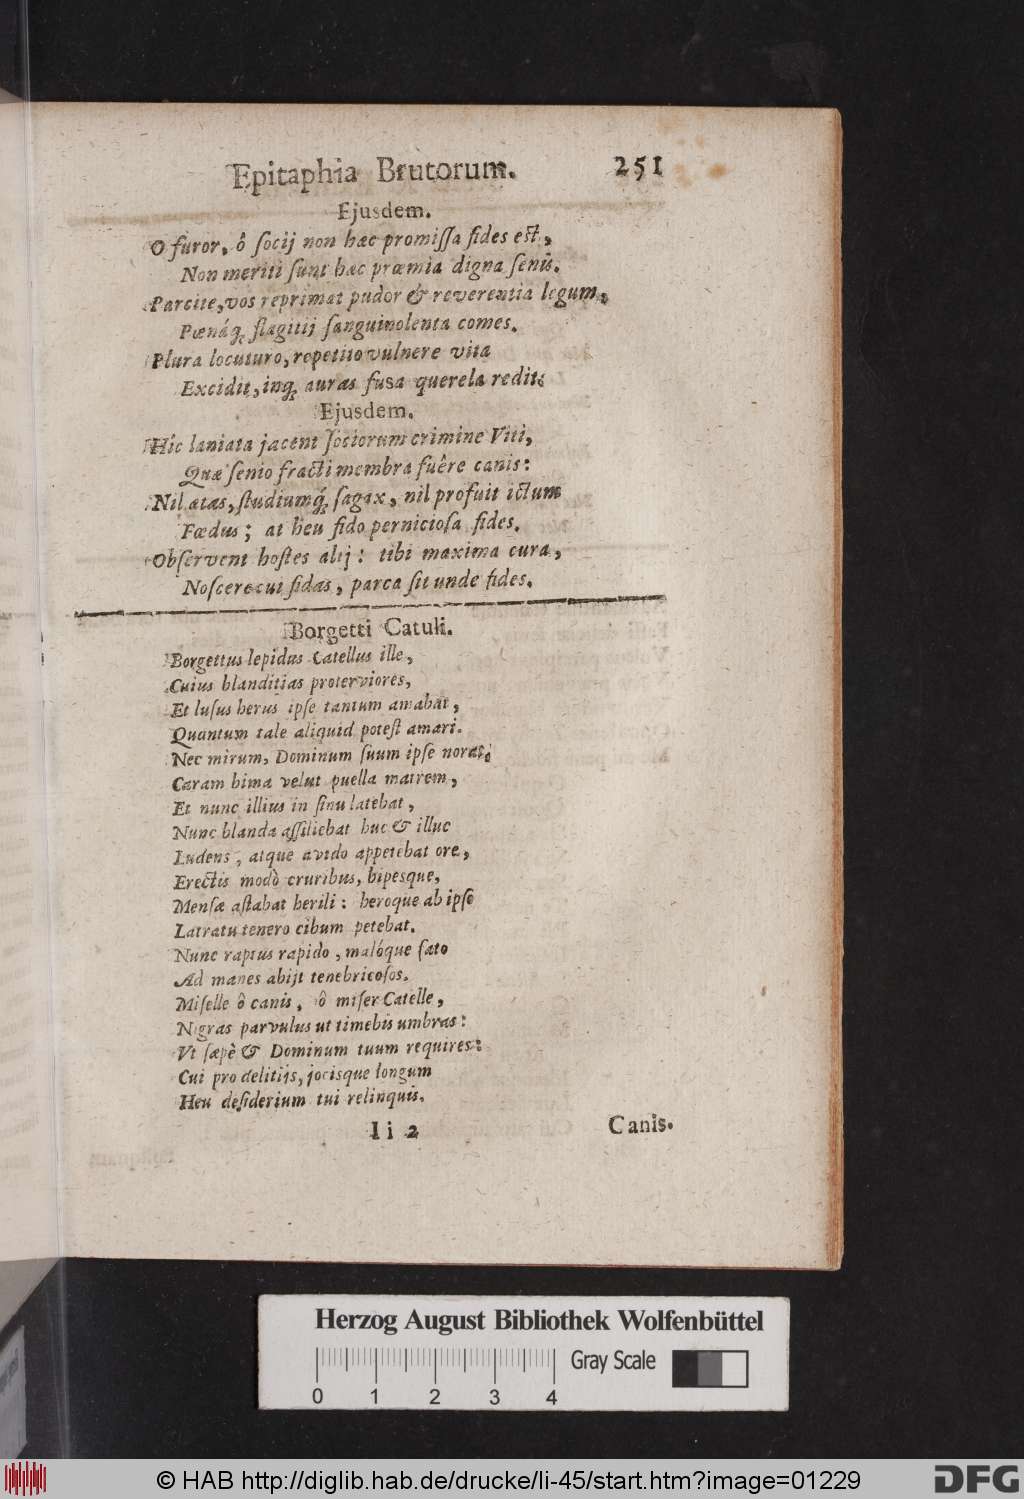 Epitaphia Brutorum. 251
Ejusdem.
O furor, ô ſocij non hæc promiſſa fides est,
Non meriti ſunt hæc præmia digna ſenis.
Parcite, vos reprimat pudor & reverentia legum,
Pœnáq; flagitij ſanguinolenta comes.
Plura locuturo, repetito vulnere vita
Excidit, inq; auras fusa querela redit.
Ejusdem.
Hîc laniata jacent ſociorum crimine Viti,
Quæ ſenio fracti membra fuêre canis:
Nil ætas, ſtudiumq́; ſagax, nil profuit ictum
Fœdus; at heu fido pernicioſa fides.
Obſervent hoſtes alij: tibi maxima cura,
Noſcere cui fidas, parca ſit unde fides.
Borgetti Catuli.
Borgettus lepidus Catellus ille,
Cuius blanditias proterviores,
Et luſus herus ipſe tantum amabat,
Quantum tale aliquid poteſt amari.
Nec mirum, Dominum ſuum ipſe norat,
Caram bima velut puella matrem,
Et nunc illius in ſinu latebat,
Nunc blanda aſſiliebat huc & illuc
Ludens, atque avido appetebat ore,
Erectis modò cruribus, bipesque,
Menſæ aſtabat herili: heroque ab ipſo
Latratu tenero cibum petebat.
Nunc raptus rapido, malóque fato
Ad manes abijt tenebricoſos.
Miſelle ô canis, ô miſer Catelle,
Nigras parvulus ut timebis umbras:
Vt ſæpè & Dominum tuum requires:
Cui pro delitijs, jocisque longum
Heu deſiderium tui relinquis.
I i 2 Canis.
Herzog August Bibliothek Wolfenbüttel
Gray Scale
0 1 2 3 4
© HAB http://diglib.hab.de/drucke/li-45/start.htm?image=01229
DFG